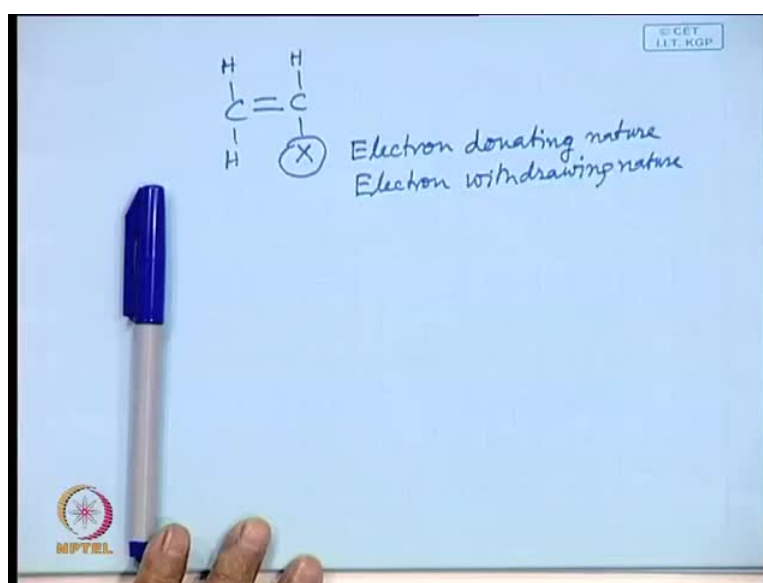 © CET
I.I.T. KGP
H H
C = C
H X Electron donating nature
Electron withdrawing nature
NPTEL